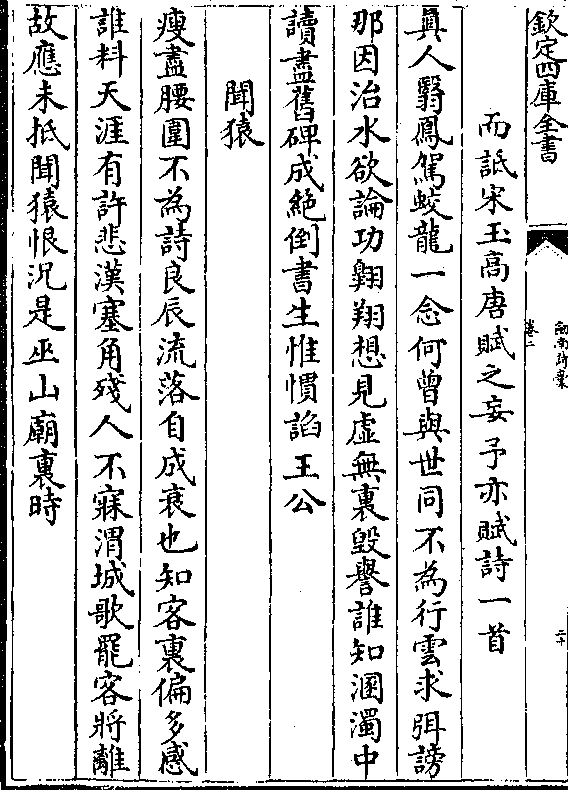 欽定四庫全書
劒南詩藁
卷二
二十
而詆宋玉高唐賦之妄予亦賦詩一首
眞人翳鳳駕蛟龍一念何曾與世同不為行雲求弭謗
那因治水欲論功翺翔想見虛無裏毁譽誰知溷濁中
讀盡舊碑成絕倒書生惟慣謟王公
聞猿
瘦盡腰圍不為詩良辰流落自成衰也知客裏偏多感
誰料天涯有許悲漢塞角殘人不寐渭城歌罷客將離
故應未抵聞猿恨況是巫山廟裏時